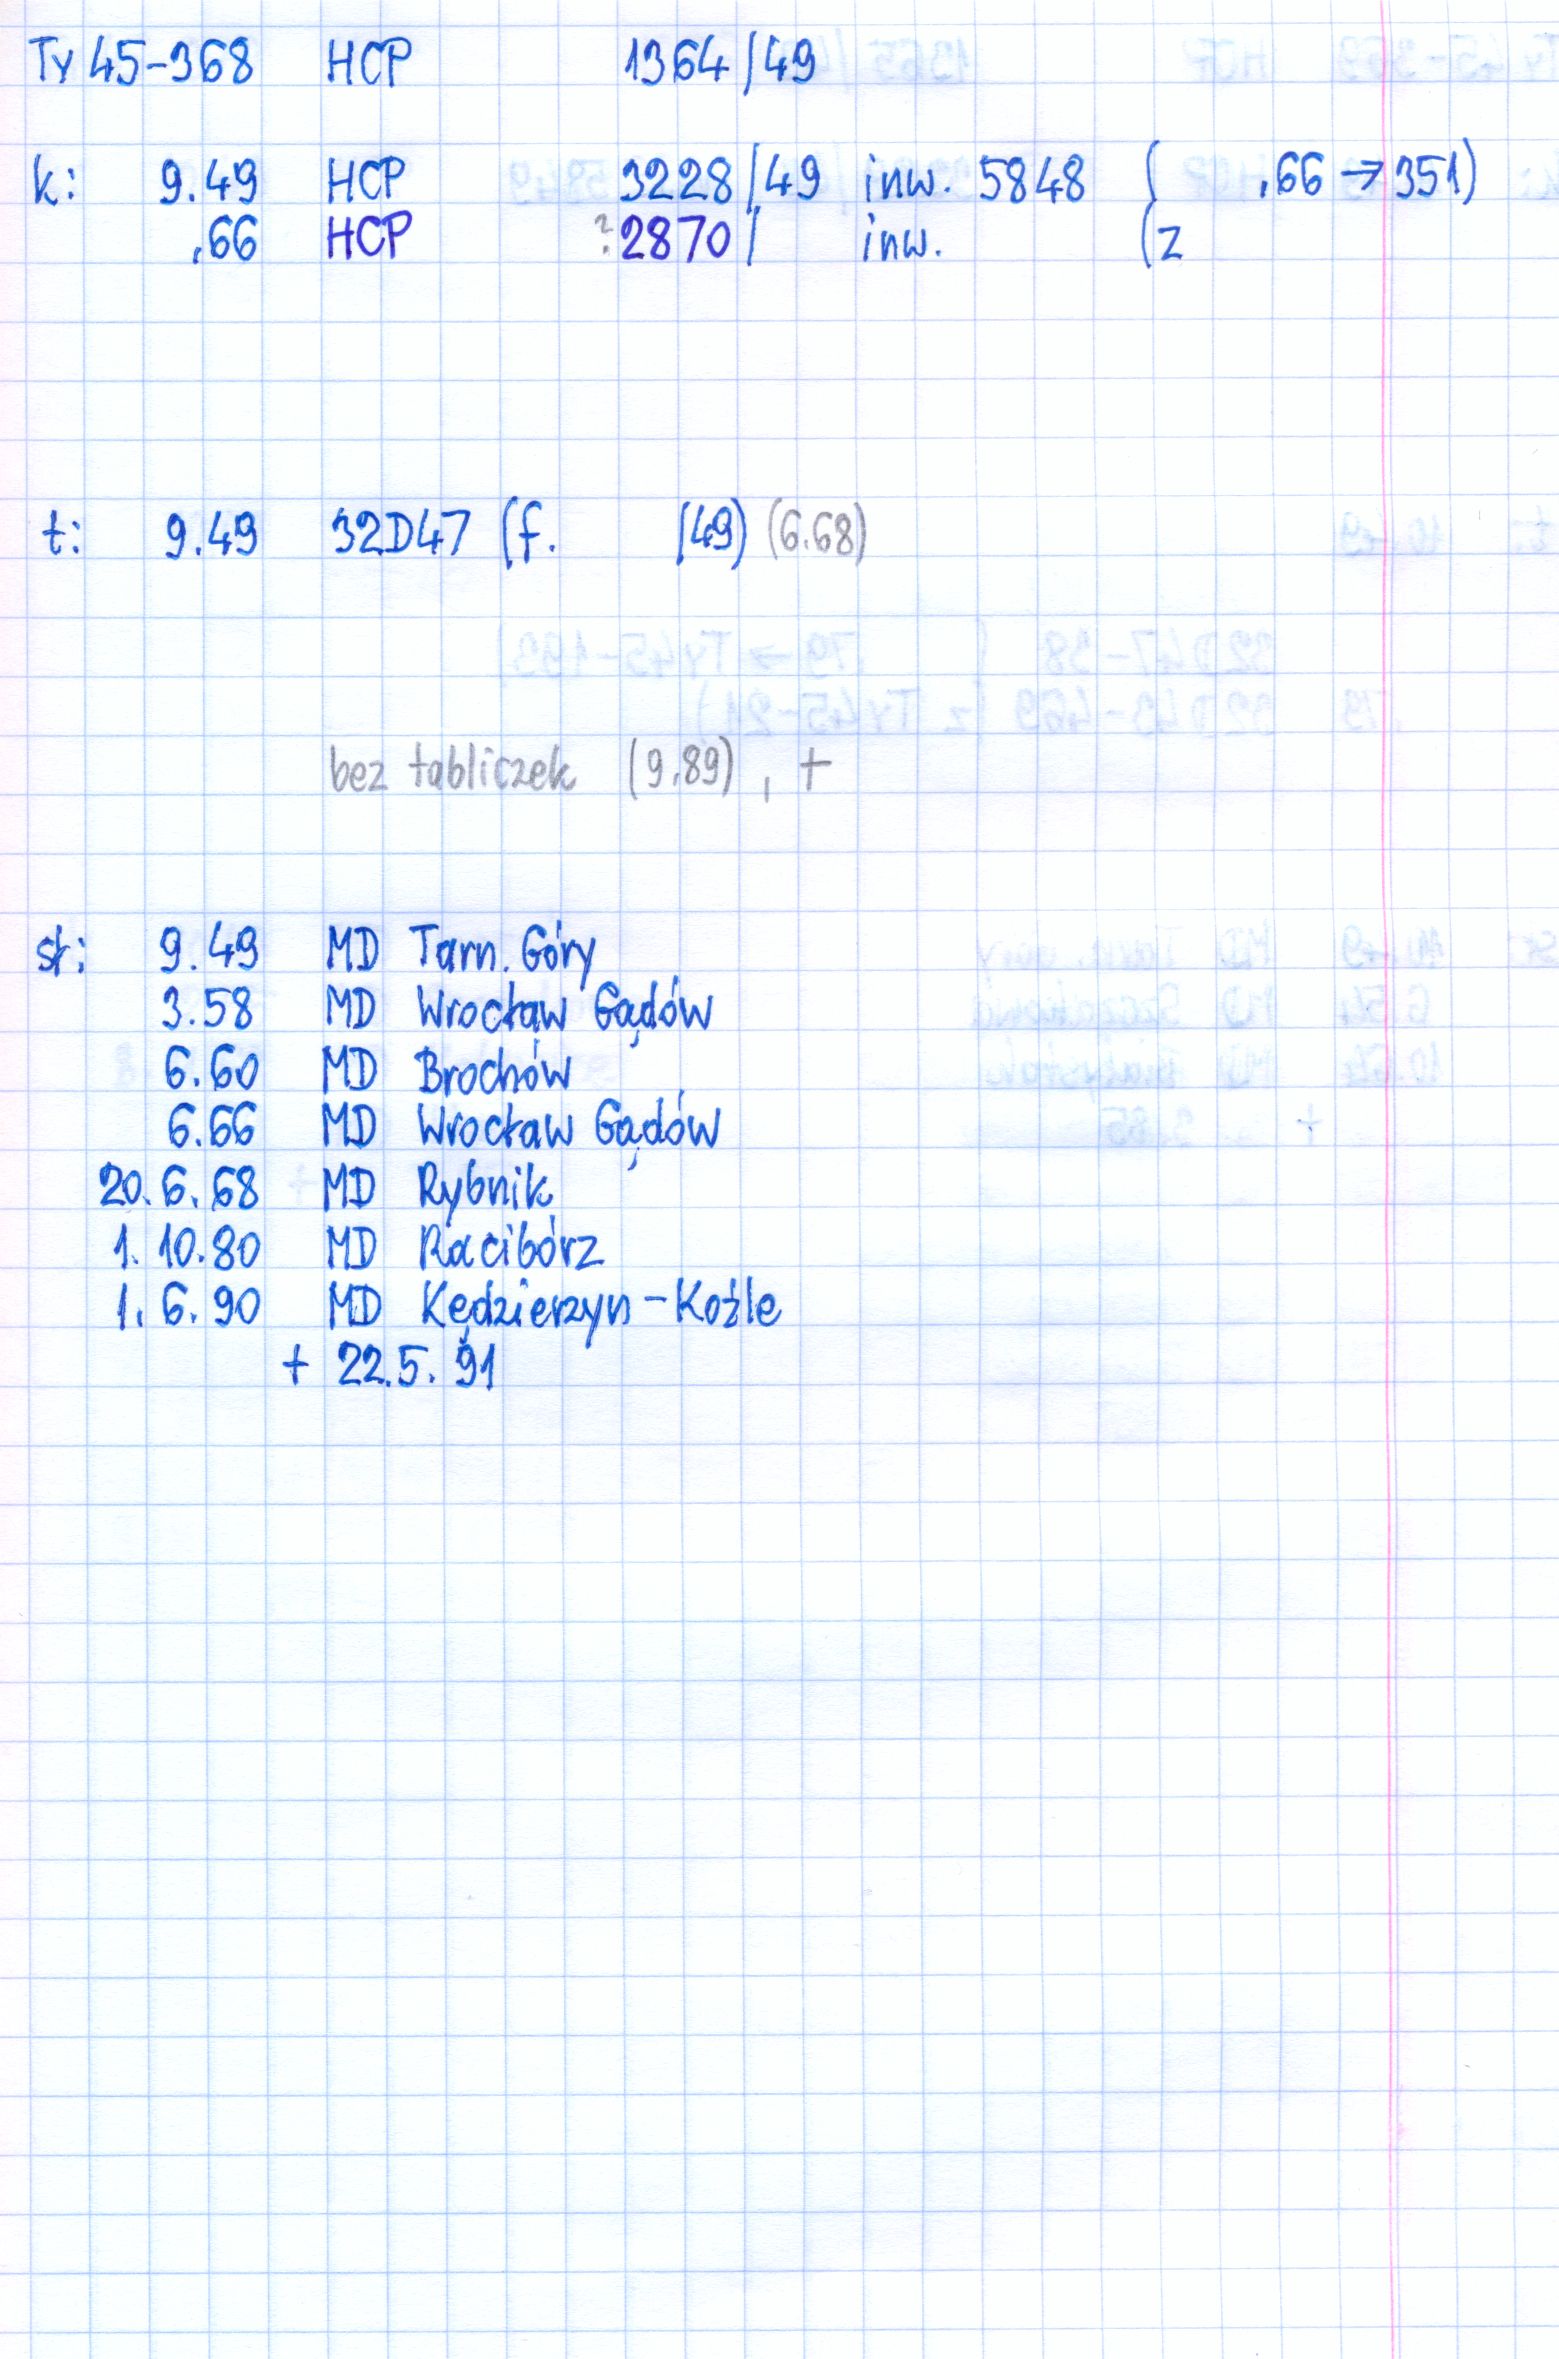 Ty 45-368 HCP 1364/49
k: 9.49 HCP 3228/49 inw. 5848 ( .66 → 351)
.66 HCP ?:2870/ inw. (z
t: 9.49 32D47 (f. /49) (6.68)
bez tabliczek (9.89), +
st: 9.49 MD Tarn. Góry
3.58 MD Wrocław Gądów
6.60 MD Brochów
6.66 MD Wrocław Gądów
20.6.68 MD Rybnik
1.10.80 MD Racibórz
1.6.90 MD Kędzierzyn-Koźle
+ 22.5.91